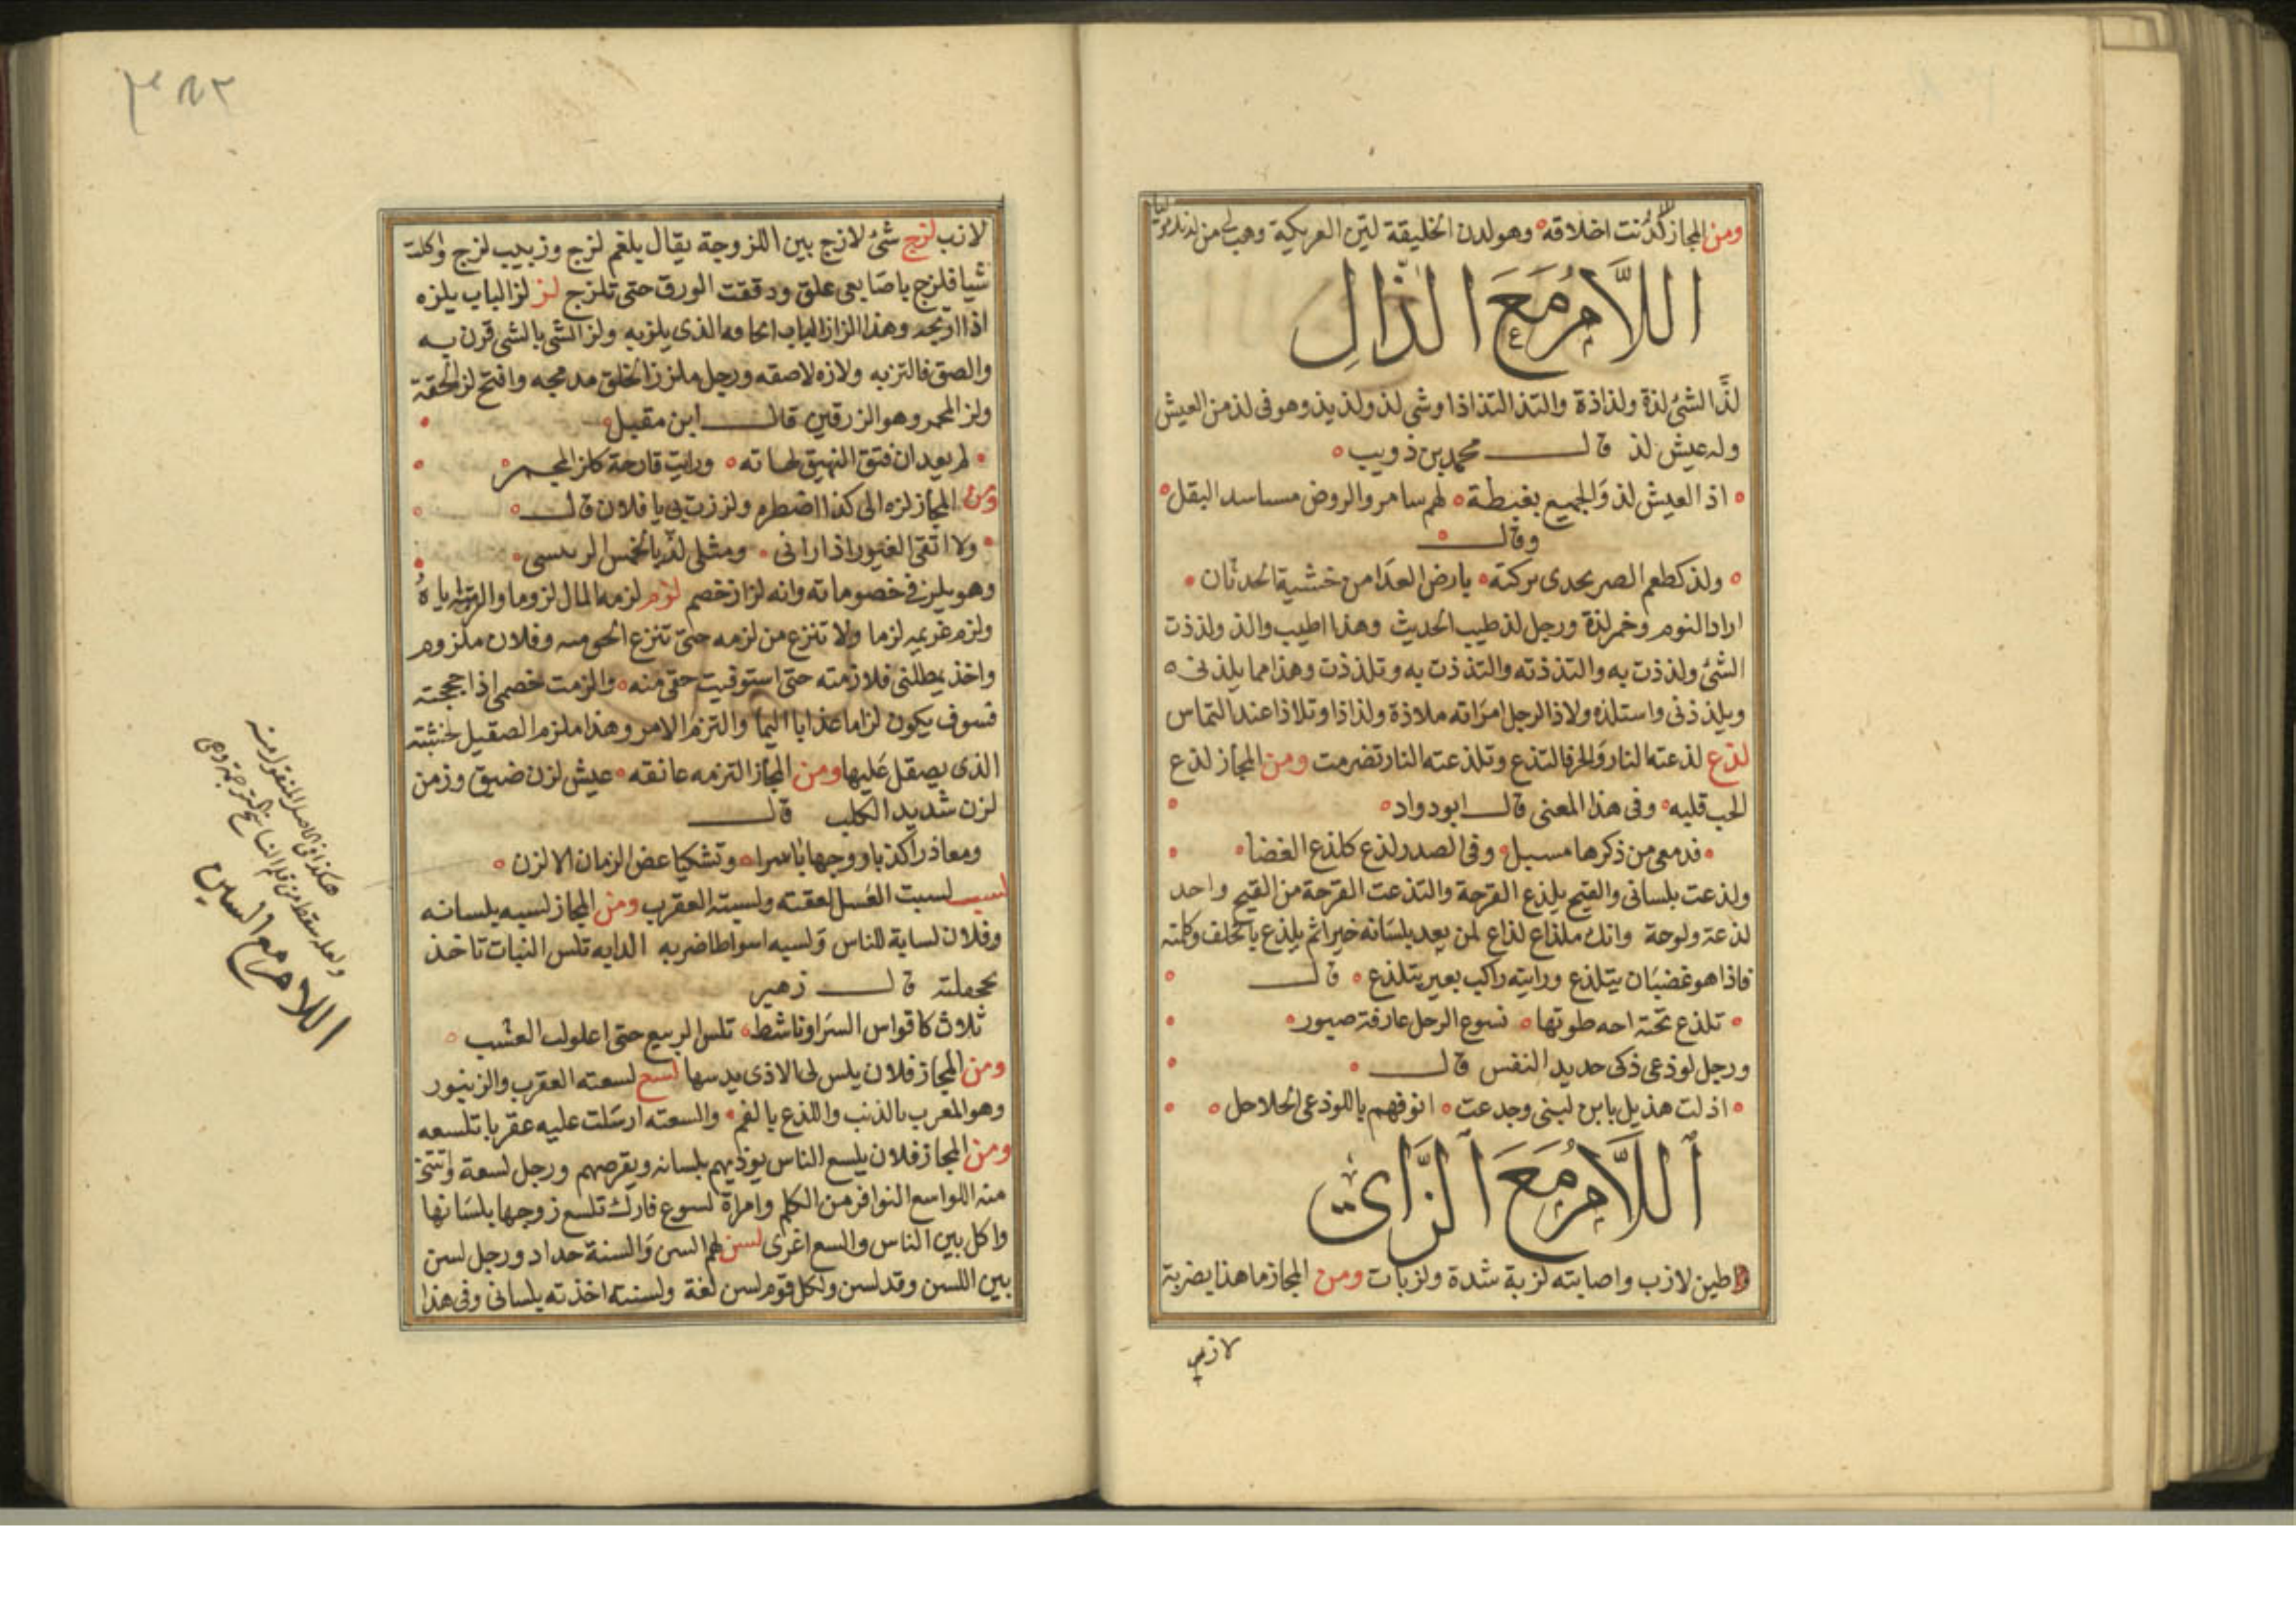 ومن المجاز لدنت اخلاقه وهو لدن الخليقة لين العريكة
اللام مع الذال
لذ الشئ لذة ولذاذة والتذ التذاذا وشي لذ ولذيذ وهو فى لذ من العيش
وله عيش لذ قال محمد بن ذويب
اذ العيش لذ والجميع بغبطة لهم سامر والروض مساسد البقل
وقال
ولذ كطعم الصرخدى تركته بارض العدا من خشية الحدثان
اراد النوم وخمر لذة ورجل لذ طيب الحديث وهذا اطيب والذ ولذذت
الشئ ولذذت به والتذذته والتذذت به وتلذذت وهذا مما يلذنى
ويلذذنى واستلذه ولاذ الرجل امراته ملاذة ولذاذا وتلاذا عند التماس
لذع لذعته النار والحر فالتذع وتلذعته النار تضرمت ومن المجاز لذع
الحب قلبه وفى هذا المعنى قال ابو دواد
فدمعى من ذكرها مسبل وفى الصدر لذع كلذع الغضا
ولذعت بلسانى والقيح يلذع القرحة والتذعت القرحة من القيح واحد
لذعة ولوحة وانك ملذاع لذاع لمن يعد بلسانه خيرا ثم يلذع بالخلف وكلمته
فاذا هو غضبان يتلذع ورايته راكب بعير يتلذع قال
تلذع تحته احه طوتها نسوع الرحل عارفة صبور
ورجل لوذعى ذكى حديد النفس قال
اذلت هذيل بابن لبنى وجدعت انوفهم باللوذعى الحلاحل
اللام مع الزاى
طين لازب واصابته لزبة شدة ولزبات ومن المجاز ما هذا بضربة
لازب
٣٨٢
لازب لزج شئ لازج بين اللزوجة يقال بلغم لزج وزبيب لزج واكلت
شيا فلزج باصابعى علق ودققت الورق حتى تلزج لز لز الباب يلزه
اذا وهذا لزاز الباب الذى يلز به ولز الشى بالشى قرن به
والصق فالتز به ولازه لاصقه ورجل ملزز الخلق مدمجه وافتح لز الحقة
ولز المجمر وهو الزرفين قال ابن مقبل
لم يعد ان فتق النهيق لهاته ورايت قارحة كلز المجمر
ومن المجاز لزه الى كذا اضطره ولززت بى يا فلان قال
ولا اتقى الغيور اذا رانى ومثلى لز بالحمس الربيسى
وهو يلز فى خصوماته وانه لزاز خصم لزم لزمه المال لزوما والزمته اياه
ولزم غريمه لزما ولا تنزع من لزمه حتى تنزع الحق منه وفلان ملزوم
واخذ يمطلنى فلازمته حتى استوفيت حقى منه والزمت خصمى اذا حججته
فسوف يكون لزاما عذابا اليما والتزم الامر وهذا ملزم الصقيل لخشبته
الذى يصقل عليها ومن المجاز التزمه عانقه عيش لزن ضيق وزمن
لزن شديد الكلب قال
ومعاذرا كذبا ووجها باسرا وتشكيا عض الزمان الالزن
لسب لسبت العسل لعقته ولسبته العقرب ومن المجاز لسبه بلسانه
وفلان لسابة للناس ولسبه اسواطا ضربه الدابه تلس النبات تاخذ
بجحفلته قال زهير
ثلاث كاقواس السراء وناشط تلس الربيع حتى العشب
ومن المجاز فلان يلس لى الاذى يدسها لسع لسعته العقرب والزنبور
وهو المعرب بالذنب واللذع بالفم والسعته ارسلت عليه عقربا تلسعه
ومن المجاز فلان يلسع الناس يوذيهم بلسانه ويقرصهم ورجل لسعة
منه اللواسع النوافر من الكلم وامراة لسوع فارك تلسع زوجها بلسانها
واكل بين الناس والسع اغرى لسن لهم السن والسنة حداد ورجل لسن
بين اللسن وقد لسن ولكل قوم لسن لغة ولسنته اخذته بلسانى وفى هذا
هكذا فى الاصل المنقول منه
ولعله سقط من قلم الناسخ ترجمة وهى
اللام مع السين